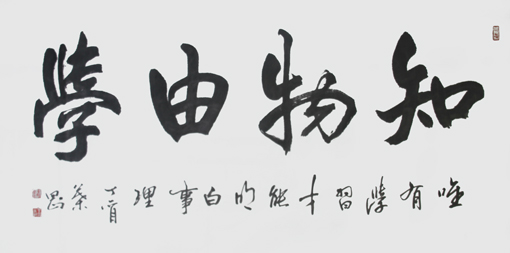 知物由學
唯有學習才能明白事理
丁酉